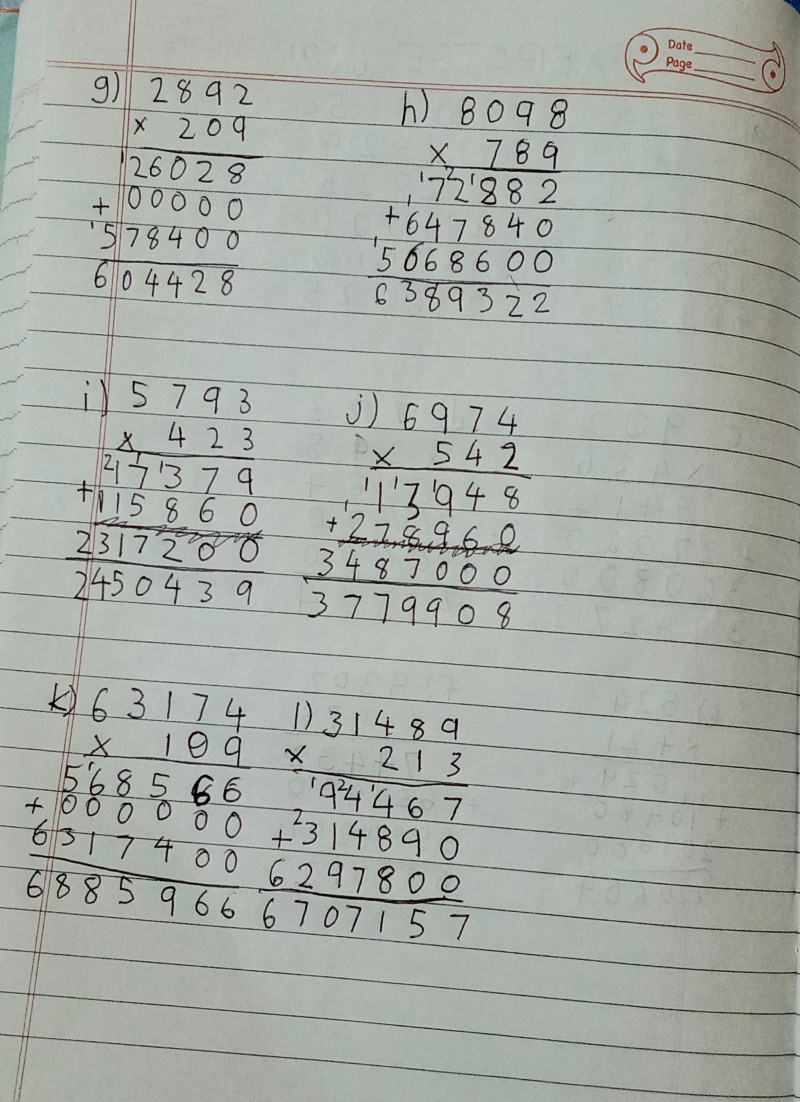 Date
Page
g) 2892
x 209
26028
+ 00000
578400
604428
h) 8098
x 789
72882
+ 647840
5668600
6389322
i) 5793
x 423
17379
+ 115860
2317200
2450439
j) 6974
x 542
13948
+ 278960
3487000
3779908
k) 63174
x 109
568566
+ 000000
6317400
6885966
l) 31489
x 213
94467
+ 314890
6297800
6707157